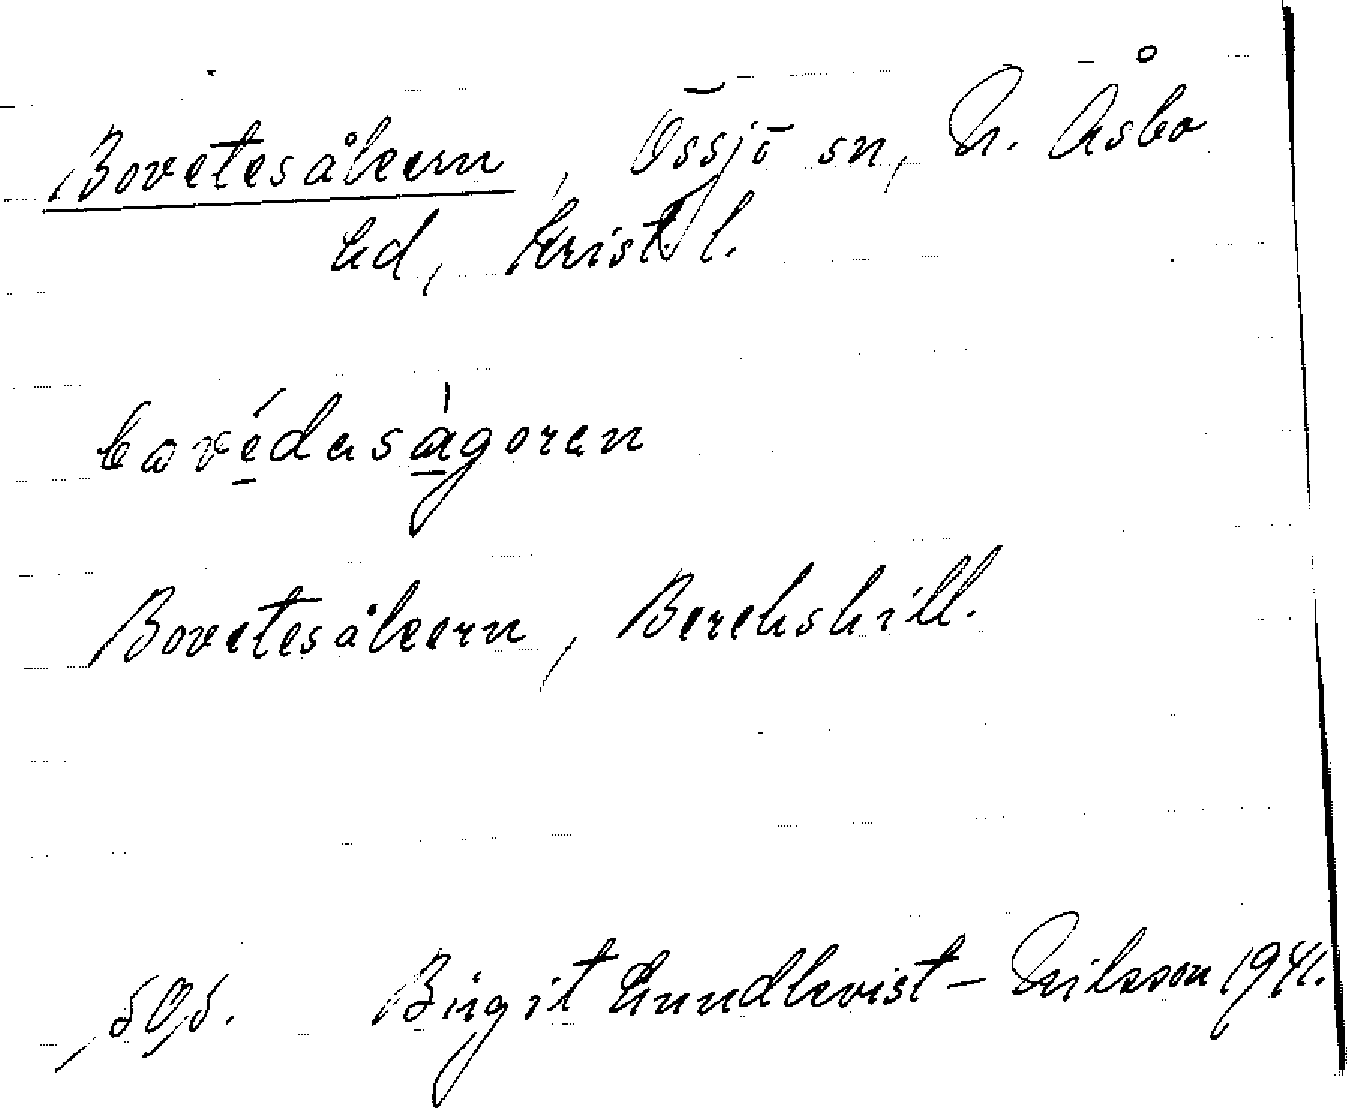 Bovetesåkern, Össjö sn, N. Åsbo
hd, Krist. l.
bovédesàgoren
Bovetesåkern, Berekskill.
sOs. Birgit Lundkvist-Nilsson 1941.